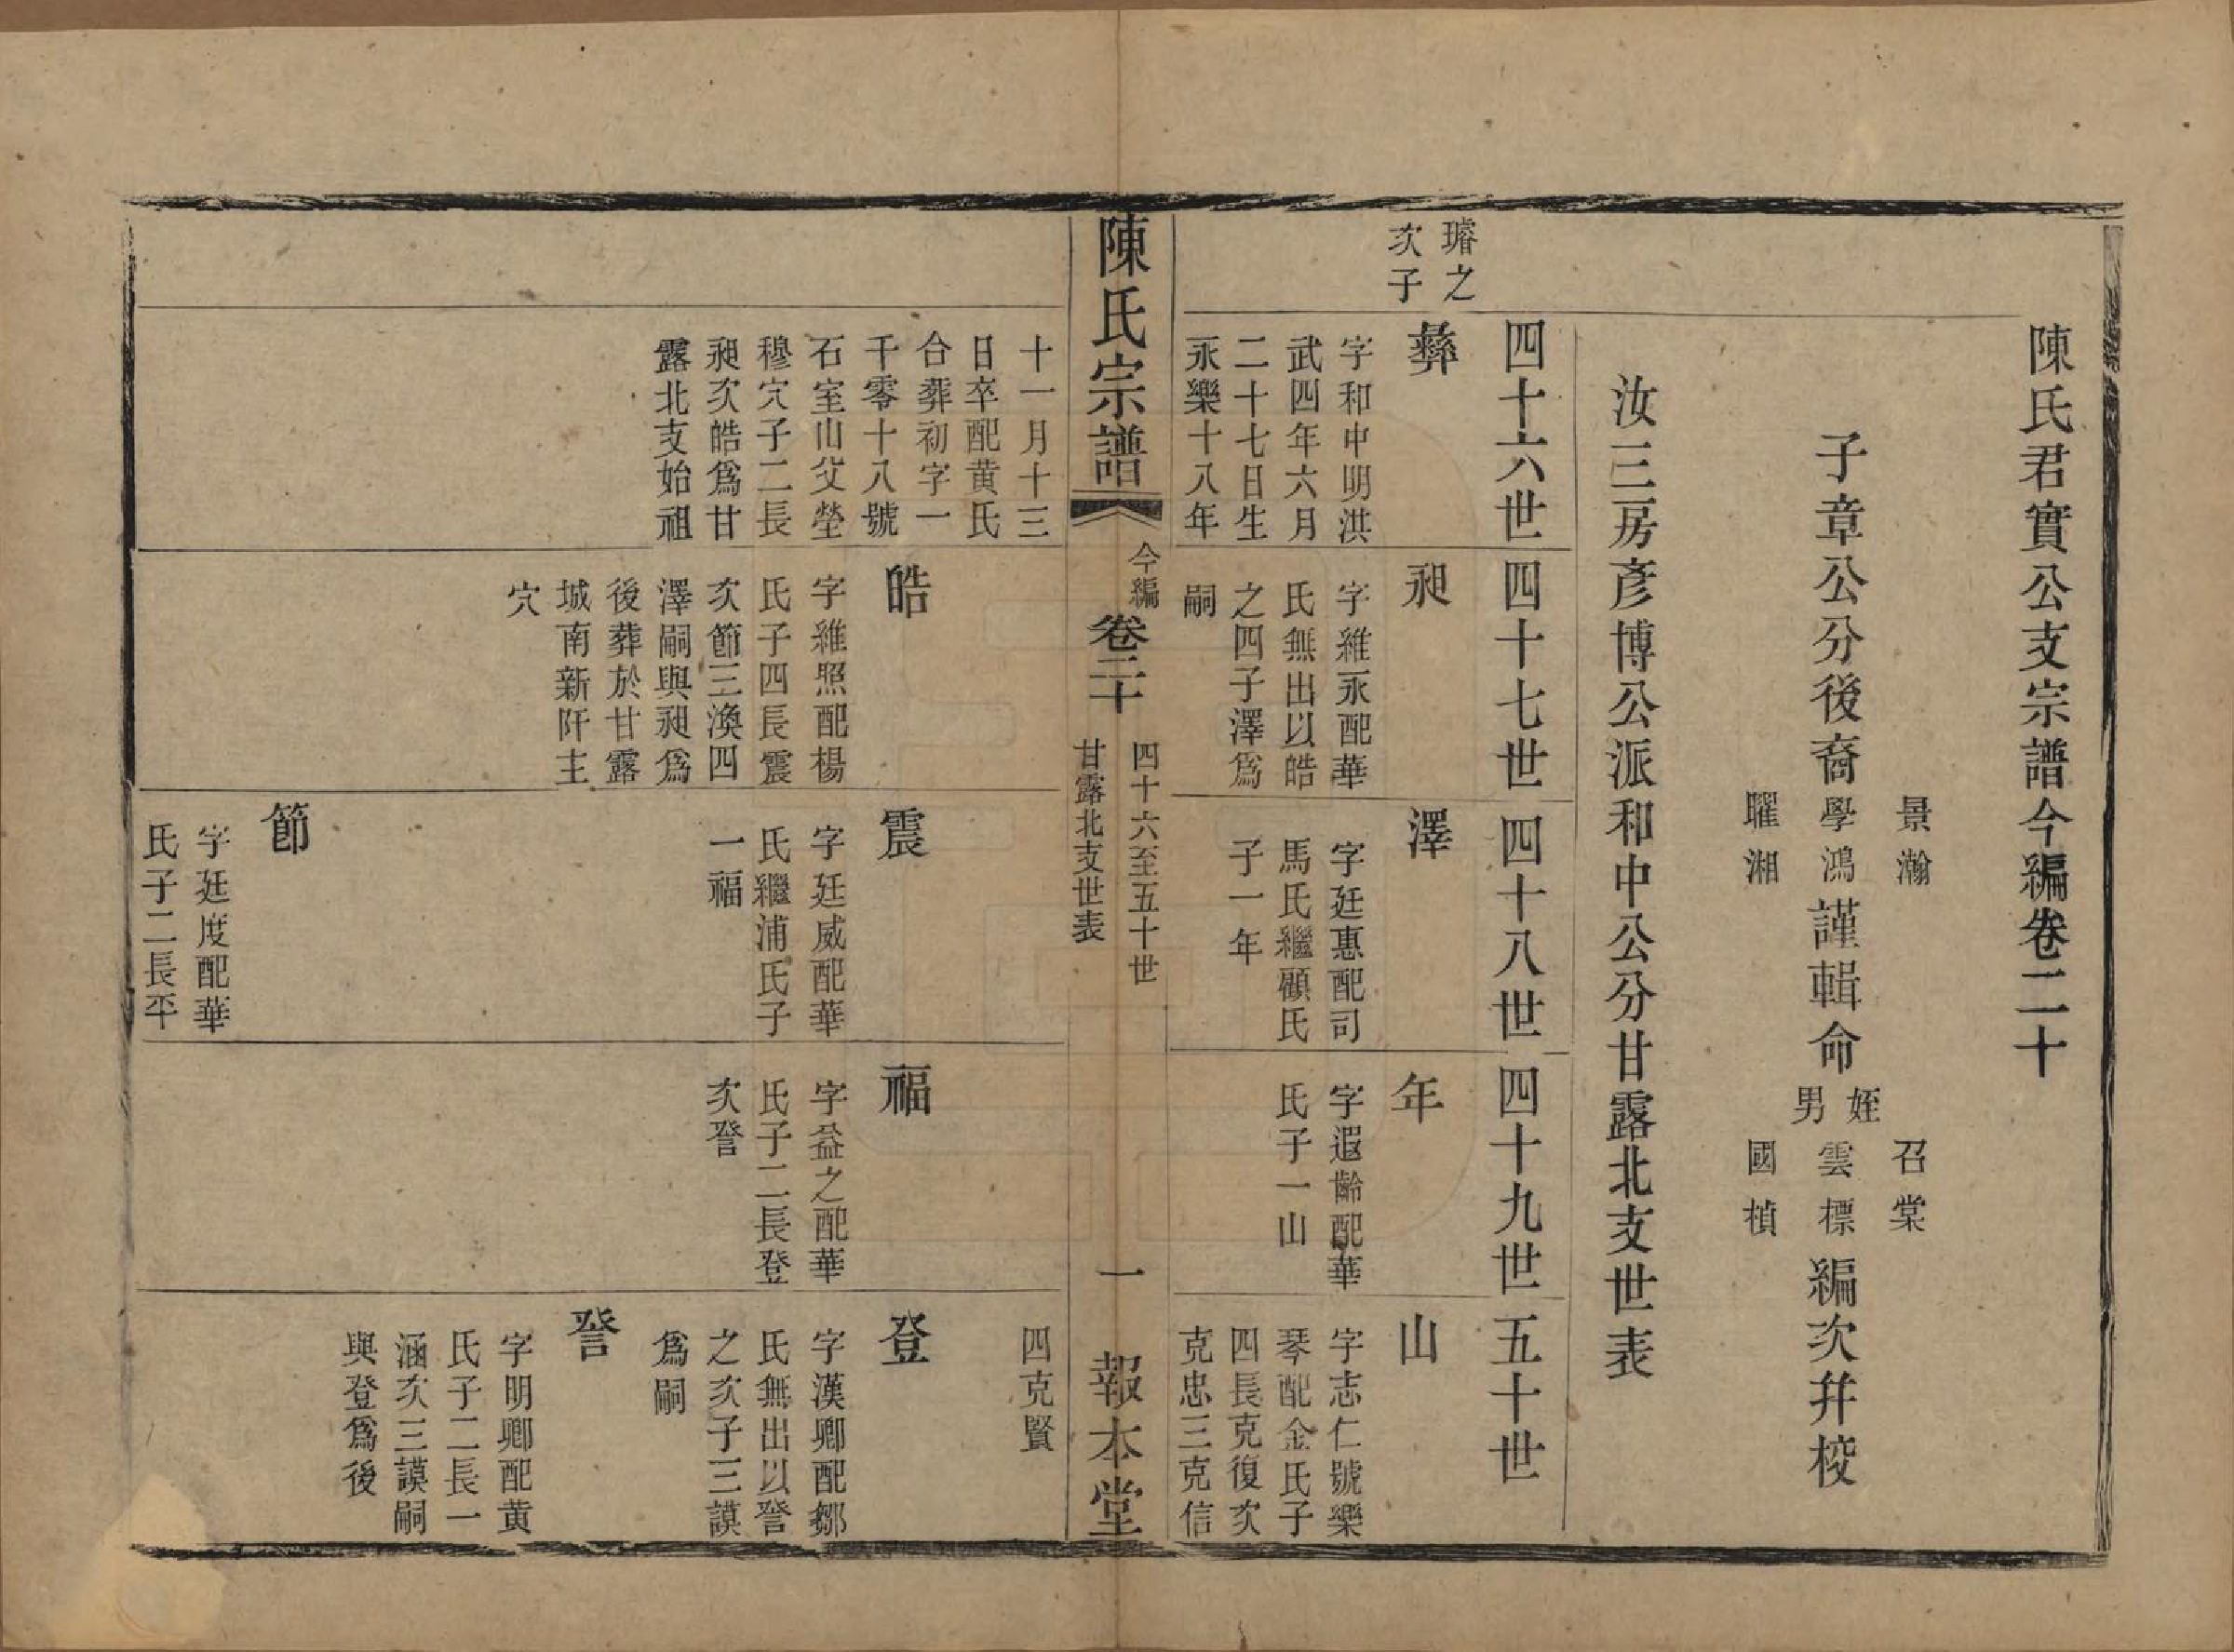 陳氏君實公支宗譜今編卷二十
子章公分後裔
景瀚
學鴻
曜湘
謹輯命
姪
男
召棠
雲標
國楨
編次幷校
汝三房彥博公派和中公分甘露北支世表
四十六世
四十七世
四十八世
四十九世
五十世
璿之
次子
彝
字和中明洪
武四年六月
二十七日生
永樂十八年
昶
字維永配華
氏無出以皓
之四子澤爲
嗣
澤
字廷惠配司
馬氏繼顧氏
子一年
年
字遐齡配華
氏子一山
山
字志仁號樂
琴配金氏子
四長克復次
克忠三克信
陳氏宗譜
今編
卷二十
四十六至五十世
甘露北支世表
一
報本堂
十一月十三
日卒配黃氏
合葬初字一
千零十八號
石室山父塋
穆穴子二長
昶次皓爲甘
露北支始祖
皓
字維照配楊
氏子四長震
次節三渙四
澤嗣與昶爲
後葬於甘露
城南新阡主
穴
震
字廷威配華
氏繼浦氏子
一福
節
字廷度配華
氏子二長平
福
字益之配華
氏子二長登
次詧
四克賢
登
字漢卿配鄒
氏無出以詧
之次子三謨
爲嗣
詧
字明卿配黃
氏子二長一
涵次三謨嗣
與登爲後